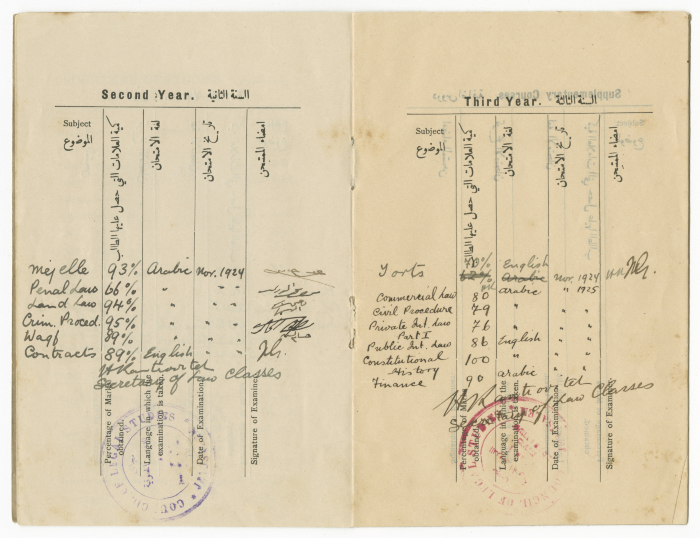 Second Year. السنة الثانية
Subject
الموضوع
كمية العلامات التي حصل عليها الطالب
لغة الامتحان
تاريخ الامتحان
امضاء الممتحن
Mejelle 93% Arabic Nov. 1924
Penal Law 66% " " "
Land Law 94% " "
Crim. Proced. 95% " "
Waqf 89% " "
Contracts 89% English "
Secretary of Law Classes
Percentage of Marks obtained.
Language in which the examination is taken.
Date of Examination.
Signature of Examiner
COUNCIL OF LEGAL STUDIES
Third Year. السنة الثالثة
Supplementary Courses
Subject
الموضوع
كمية العلامات التي حصل عليها الطالب
لغة الامتحان
تاريخ الامتحان
امضاء الممتحن
Torts English
Arabic Nov. 1924
Commercial Law 80 Arabic " 1925
Civil Procedure 79 " "
Private Int. Law 76 " "
Part I
Public Int. Law 86 English "
Constitutional 100 " "
History
Finance 90 Arabic "
Secretary of Law Classes
Percentage of Marks obtained.
Language in which the examination is taken.
Date of Examination
Signature of Examiner